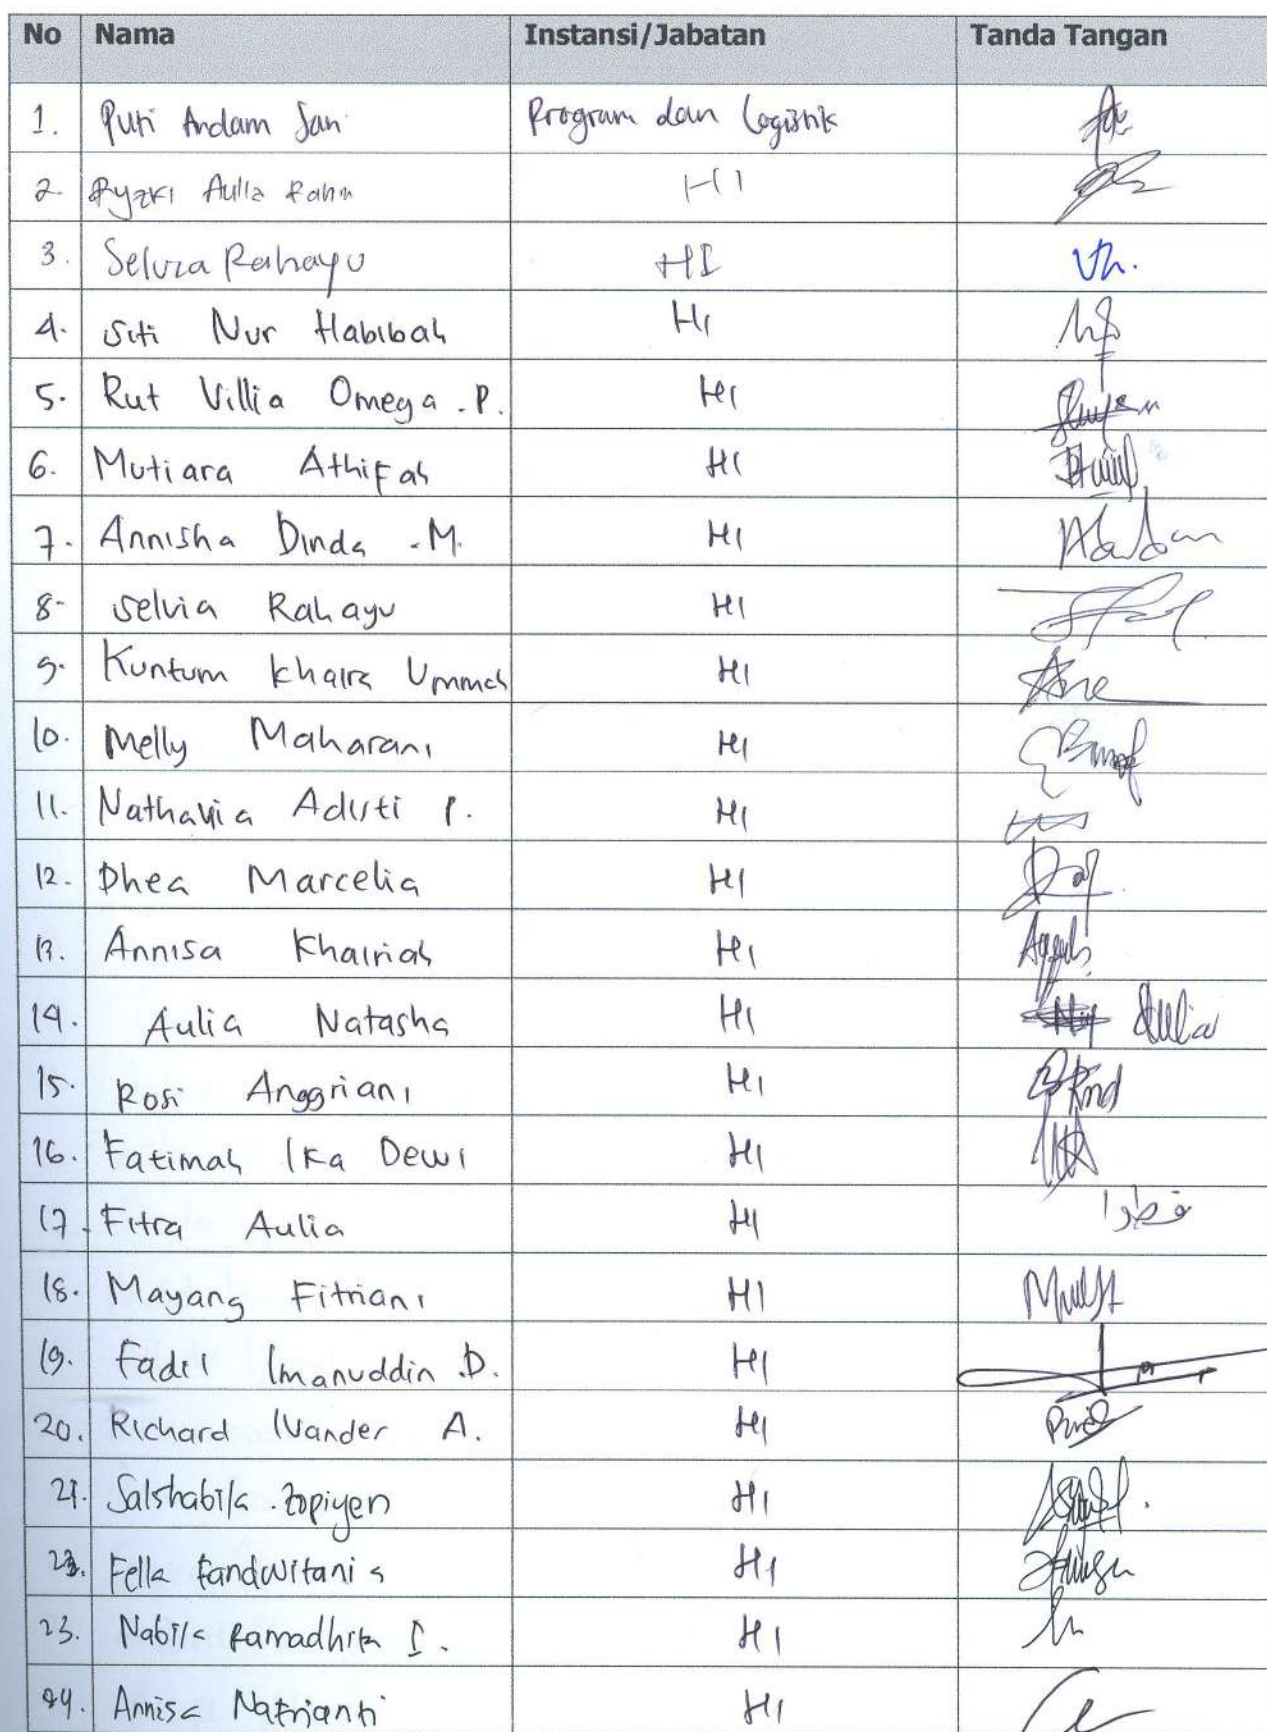 No Nama Instansi/Jabatan Tanda Tangan
1. Puti Andam Sari Program dan Logistik
2. Ryzki Aulia Rahm HI
3. Selvia Rahayu HI
4. Siti Nur Habibah HI
5. Rut Villia Omega .P. HI
6. Mutiara Athifah HI
7. Annisha Dinda .M. HI
8. Selvia Rahayu HI
9. Kuntum Khaira Ummah HI
10. Melly Maharani HI
11. Nathania Adisti P. HI
12. Dhea Marcelia HI
13. Annisa Khairiah HI
14. Aulia Natasha HI Aulia
15. Rosi Anggriani HI
16. Fatimah Ika Dewi HI
17. Fitra Aulia HI
18. Mayang Fitriani HI
19. Fadil Imanuddin .D. HI
20. Richard Ivander A. HI
21. Salshabila .Zopiyen HI
22. Fella Fandwitania HI
23. Nabila Ramadhita I. HI
24. Annisa Natrianti HI